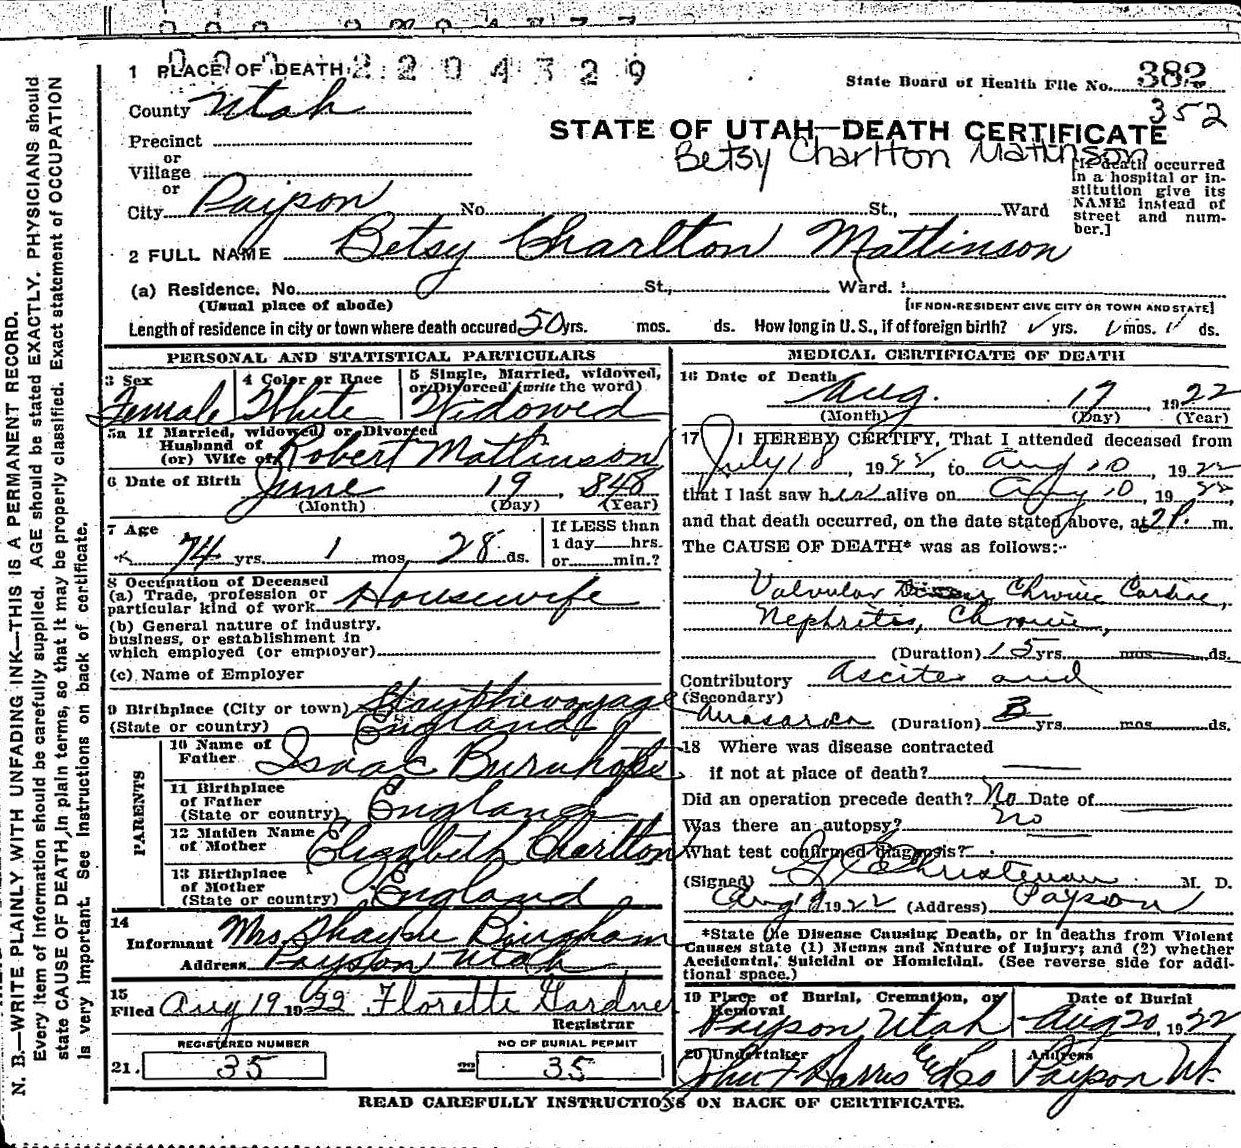 2204329
1 PLACE OF DEATH
State Board of Health File No. 382
352
County Utah
STATE OF UTAH—DEATH CERTIFICATE
Betsy Charlton Mattinson
Precinct
or
Village
or
City Payson No. St., Ward
[If death occurred
in a hospital or in-
stitution give its
NAME instead of
street and num-
ber.]
2 FULL NAME Betsy Charlton Mattinson
(a) Residence. No. St., Ward.
(Usual place of abode)
[IF NON-RESIDENT GIVE CITY OR TOWN AND STATE]
Length of residence in city or town where death occured 50 yrs. mos. ds. How long in U. S., if of foreign birth? yrs. mos. ds.
PERSONAL AND STATISTICAL PARTICULARS
3 Sex
Female
4 Color or Race
White
5 Single, Married, widowed,
or Divorced (write the word)
Widowed
5a If Married, widowed, or Divorced
Husband of
(or) Wife of Robert Mattinson
6 Date of Birth June 19, 848
(Month) (Day) (Year)
7 Age
74 yrs. 1 mos. 28 ds.
If LESS than
1 day hrs.
or min.?
8 Occupation of Deceased
(a) Trade, profession or
particular kind of work Housewife
(b) General nature of industry,
business, or establishment in
which employed (or employer)
(c) Name of Employer
9 Birthplace (City or town)
(State or country) England
PARENTS
10 Name of
Father Isaac Burnhope
11 Birthplace
of Father
(State or country) England
12 Maiden Name
of Mother Elizabeth Charlton
13 Birthplace
of Mother
(State or country) England
14
Informant Mrs. Shayne Bingham
Address Payson Utah
15
Filed Aug 19 1922 Florette Gardner
Registrar
REGISTERED NUMBER
21. 35
NO OF BURIAL PERMIT
22 35
MEDICAL CERTIFICATE OF DEATH
16 Date of Death
Aug. 17, 1922
(Month) (Day) (Year)
17 I HEREBY CERTIFY, That I attended deceased from
July 18, 1922, to Aug 10, 1922
that I last saw her alive on Aug 10, 1922
and that death occurred, on the date stated above, at 2 P. m.
The CAUSE OF DEATH* was as follows:
Valvular Chronic Cardiac,
Nephritis, Chronic,
(Duration) 15 yrs. mos. ds.
Contributory Ascites and
(Secondary)
Anasarca (Duration) 3 yrs. mos. ds.
18 Where was disease contracted
if not at place of death?
Did an operation precede death? No Date of
Was there an autopsy? No
What test confirmed diagnosis?
(Signed) Christensen M. D.
Aug 19 1922 (Address) Payson
*State the Disease Causing Death, or in deaths from Violent
Causes state (1) Means and Nature of Injury; and (2) whether
Accidental, Suicidal or Homicidal. (See reverse side for addi-
tional space.)
19 Place of Burial, Cremation, or
Removal
Payson Utah
Date of Burial
Aug 20, 1922
20 Undertaker
John F Harris & Co
Address
Payson Ut.
READ CAREFULLY INSTRUCTIONS ON BACK OF CERTIFICATE.
N. B.—WRITE PLAINLY WITH UNFADING INK—THIS IS A PERMANENT RECORD.
Every item of information should be carefully supplied. AGE should be stated EXACTLY. PHYSICIANS should
state CAUSE OF DEATH in plain terms, so that it may be properly classified. Exact statement of OCCUPATION
is very important. See Instructions on back of certificate.